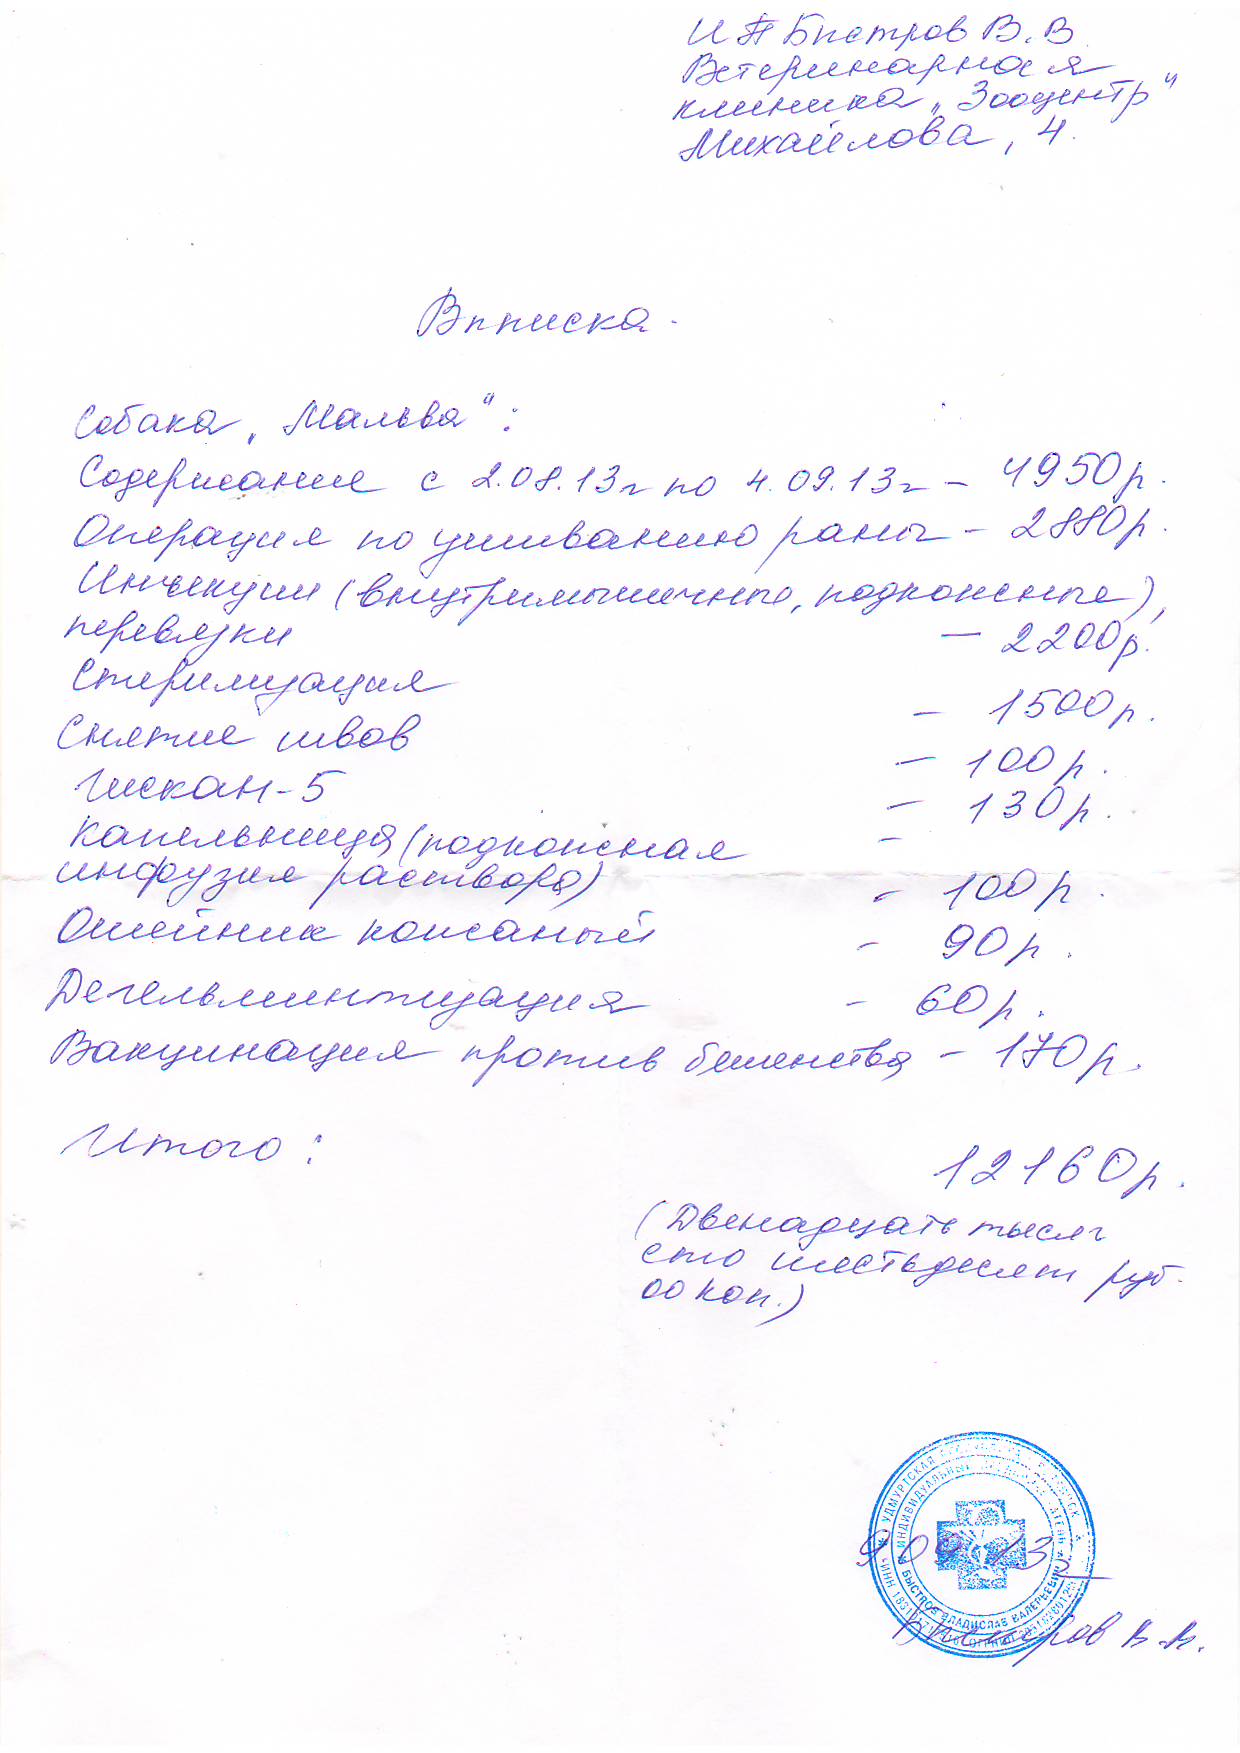 ИП Быстров В.В
Ветеринарная
клиника „Зооцентр"
Михайлова, 4.
Выписка.
Собака „Мальва":
Содержание с 2.08.13г по 4.09.13г – 4950р.
Операция по ушиванию раны – 2880р.
Инъекции (внутримышечные, подкожные),
перевязки – 2200р.
Стерилизация – 1500р.
Снятие швов – 100р.
Гискан-5 – 130р.
Капельница (подкожная –
инфузия раствора) – 100р.
Ошейник кожаный – 90р.
Дегельминтизация – 60р.
Вакцинация против бешенства – 170р.
Итого: 12160р.
(Двенадцать тысяч
сто шестьдесят руб.
00 коп.)
УДМУРТСКАЯ
ИНДИВИДУАЛЬНЫЙ
БЫСТРОВ ВЛАДИСЛАВ ВАЛЕРЬЕВИЧ
ИНН
ОГРНИП
9.09.13г